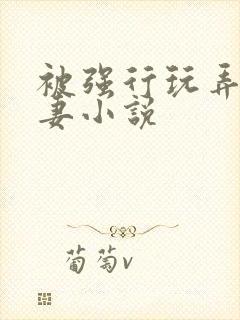 被强行玩弄
妻小説
葡萄v